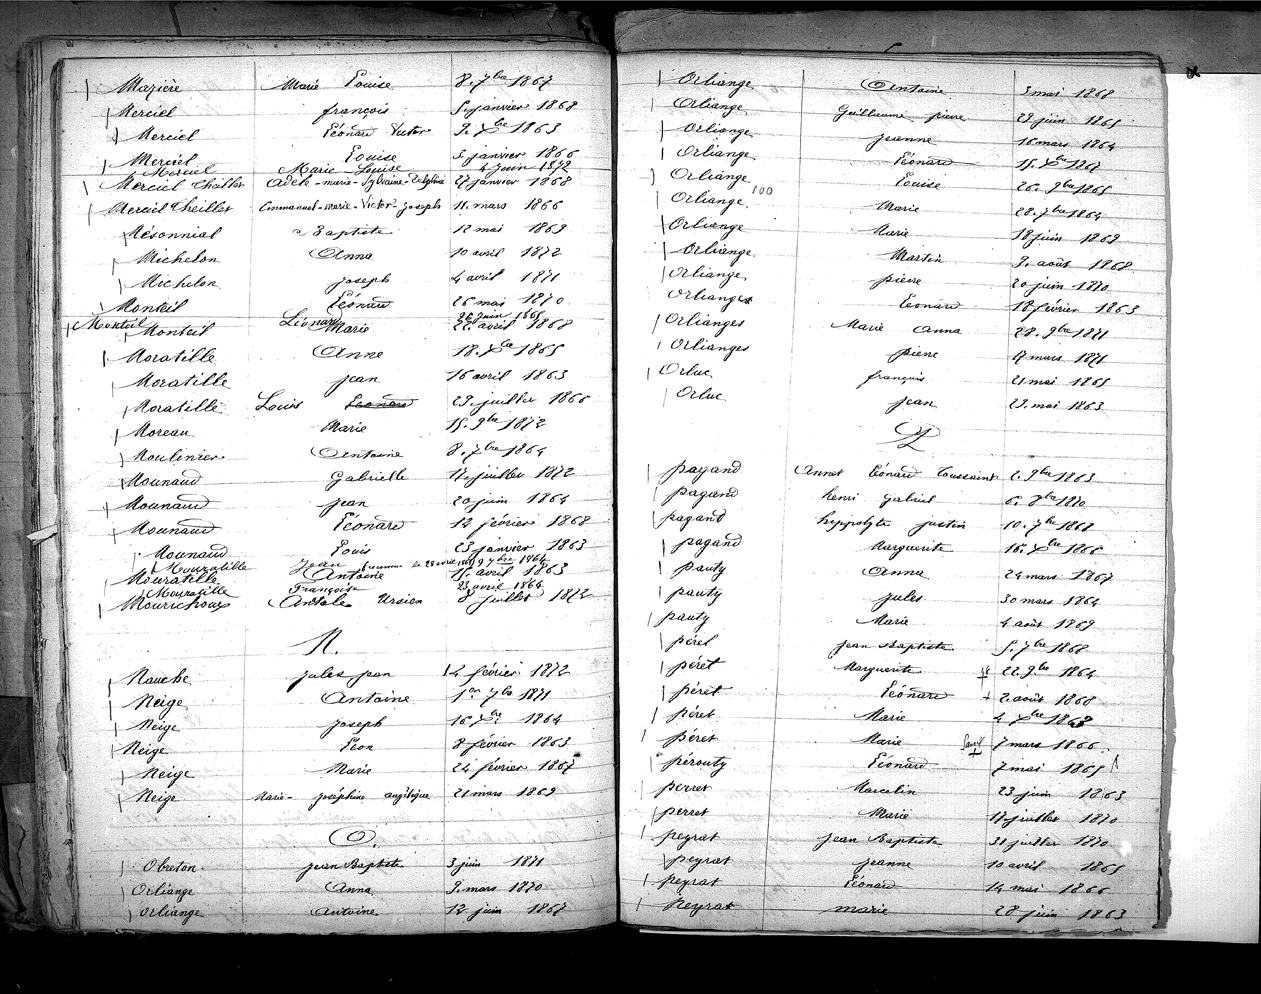 Mazière Marie Louise 8. 7bre 1867
Merciel françois 5. janvier 1868
Merciel Léonard Victor 9. Xbre 1863
Merciel Louise 3 janvier 1866
Merciel Marie-Louise 4 juin 1872
Merciel Theillet Adèle-marie-Sylvaine-Delphine 27 janvier 1868
Merciel Theillet Emmanuel-marie-Victor-joseph 11. mars 1866
Mésonnial Baptiste 12 mai 1869
Michelon Anna 10 avril 1872
Michelon joseph 4 avril 1871
Monteil Léonard 26 mai 1870
Monteil Léonard 26 juin 1865
Monteil Marie 22 avril 1868
Moratille Anne 18. Xbre 1865
Moratille jean 16 avril 1863
Moratille Louis Léonard 29. juillet 1866
Moreau Marie 15. 9bre 1872
Moulinier Antoine 8. 7bre 1864
Mounaud Gabrielle 17. juillet 1872
Mounaud jean 20 juin 1864
Mounaud Léonard 12 février 1868
Mounaud Louis 23 janvier 1863
Mouratille Jean 9 7bre 1864
Mouratille Antoine 15. avril 1863
Mouratille Françoise 23 avril 1864
Mourichoux Antole Ursien 8 juillet 1872
N.
Nauche jules jean 14 février 1872
Neige Antoine 1er 7bre 1871
Neige joseph 16 Xbre 1864
Neige Léon 8 février 1863
Neige Marie 24 février 1867
Neige Marie-joséphine angélique 21 mars 1869
O.
Obreton. jean Baptiste 3 juin 1871
Orliange Anna 9. mars 1870
Orliange Antoine. 12 juin 1867
Orliange Antoine 3 mai 1868
Orliange Guillaume pierre 29 juin 1865
Orliange jeanne 16 mars 1864
Orliange Léonard 15. Xbre 1867
Orliange Louise 26. 9bre 1865
Orliange 100 Marie 28. 7bre 1864
Orliange Marie 18 juin 1869
Orliange Martin 9. août 1868
Orliange pierre 20 juin 1870
Orlianges Léonard 18 février 1863
Orlianges Marie Anna 28. 9bre 1871
Orlianges pierre 17 mars. 1871
Orluc françois 21 mai 1865
Orluc jean 29. mai 1863
P
pagand Annet Léonard Toussaint 2. 9bre 1863
pagand henri gabriel 6. 9bre 1870
pagand hyppolyte justin 10. 7bre 1868
pagand Marguerite 16. Xbre 1866
pauty Anna 24 mars 1867
pauty jules 30 mars 1864
pauty Marie 4 août 1869
pérel jean Baptiste 5. 7bre 1868
péret Marguerite 22. 9bre 1864
péret Léonard + 2 août 1868
péret. Marie 4 Xbre 1863
péret Marie 7 mars 1866
pérouty Léonard 7 mai 1865
perret Marcelin 23 juin 1863
perret Marie 17 juillet 1870
peyrat jean Baptiste 31 juillet 1870
peyrat jeanne 10 avril 1865
peyrat Léonard 14 mai 1866
Peyrat marie 28 juin 1863